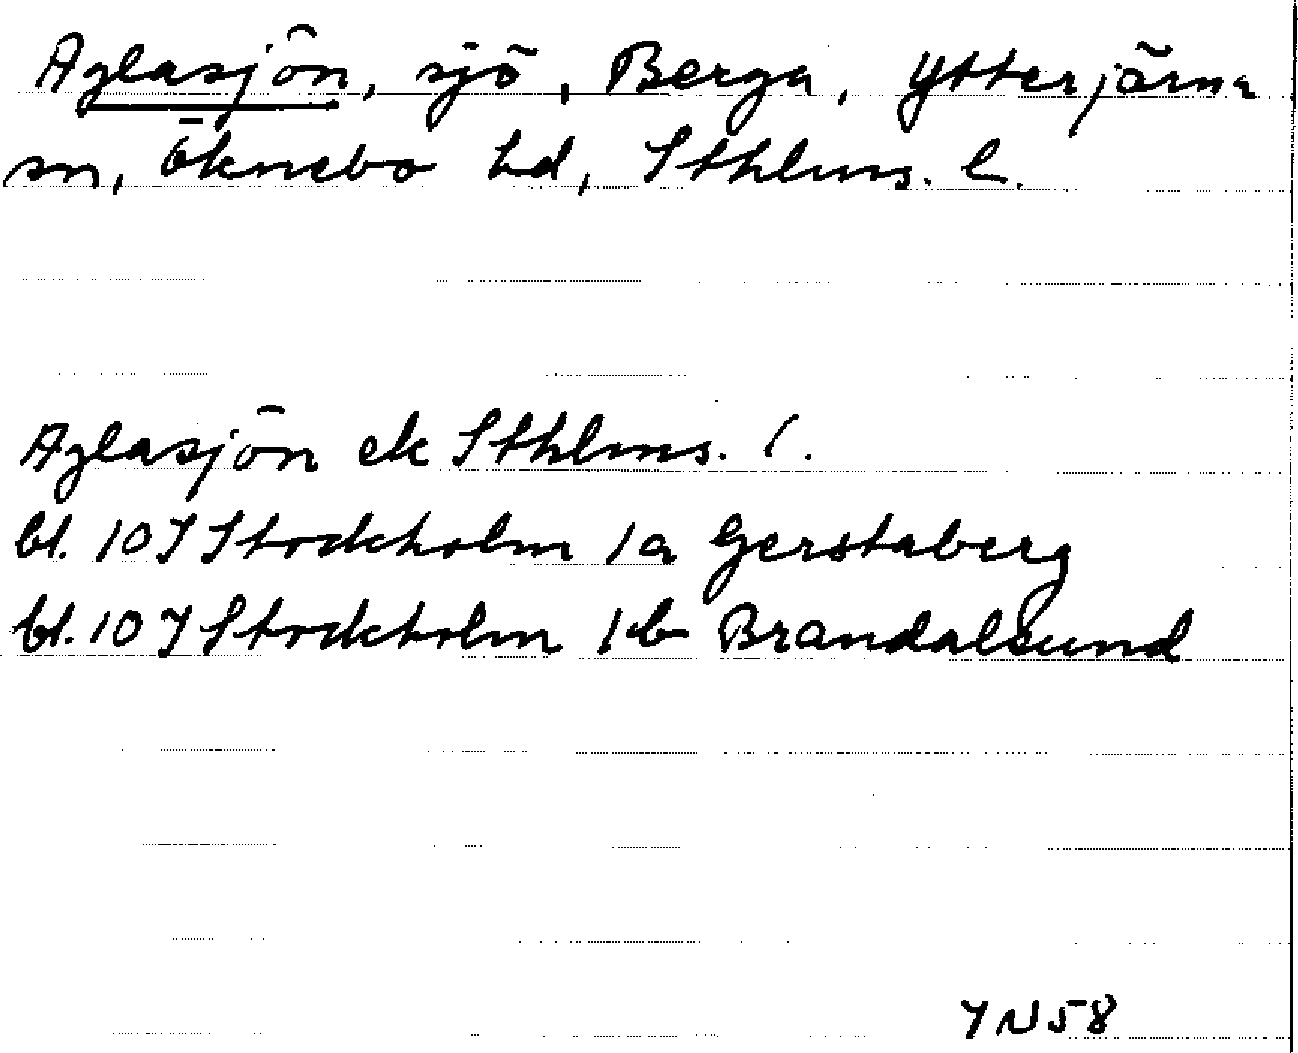 Aglasjön, sjö, Berga, Ytterjärna
sn, Öknebo hd, Sthlms. l.
Aglasjön ek Sthlms. l.
bl. 10I Stockholm 1a Gerstaberg
bl. 10I Stockholm 1b Brandalsund
YN58